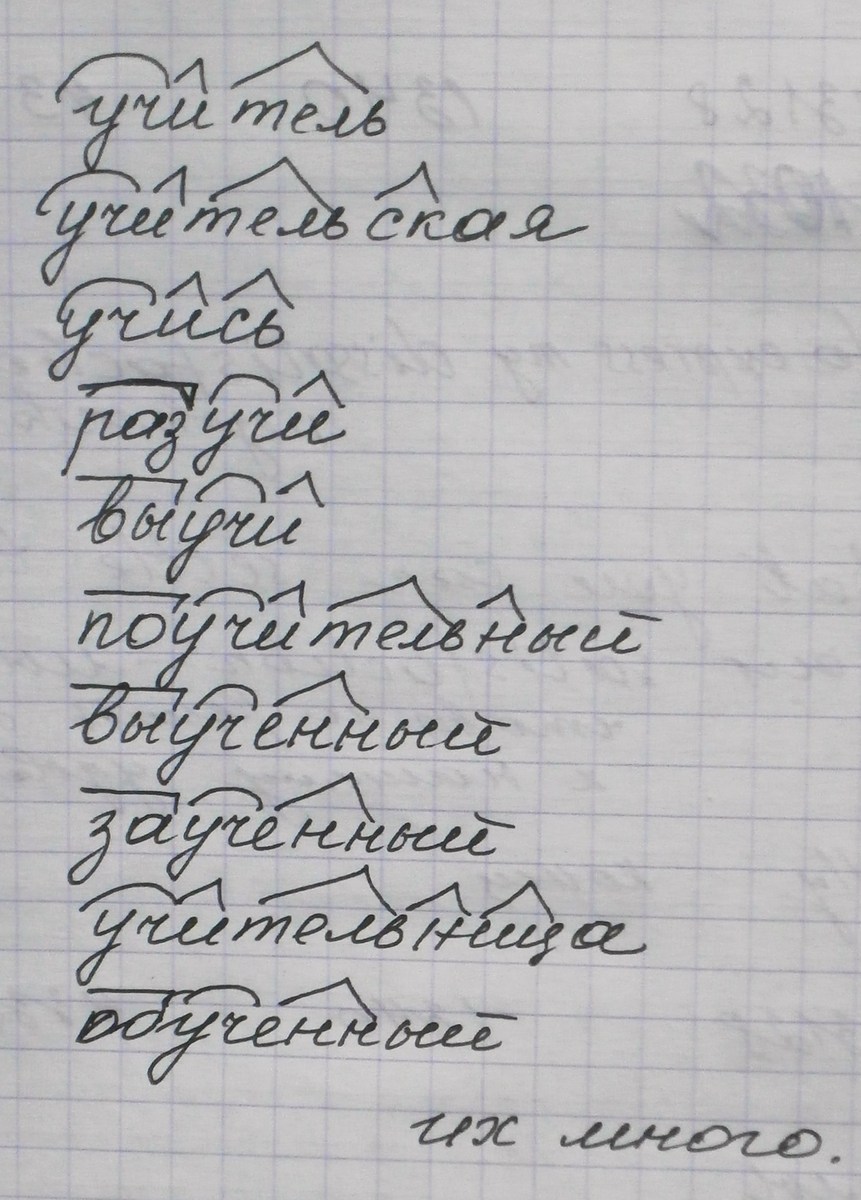 учитель
учительская
учись
разучи
выучи
поучительный
выученный
заученный
учительница
обученный
их много.